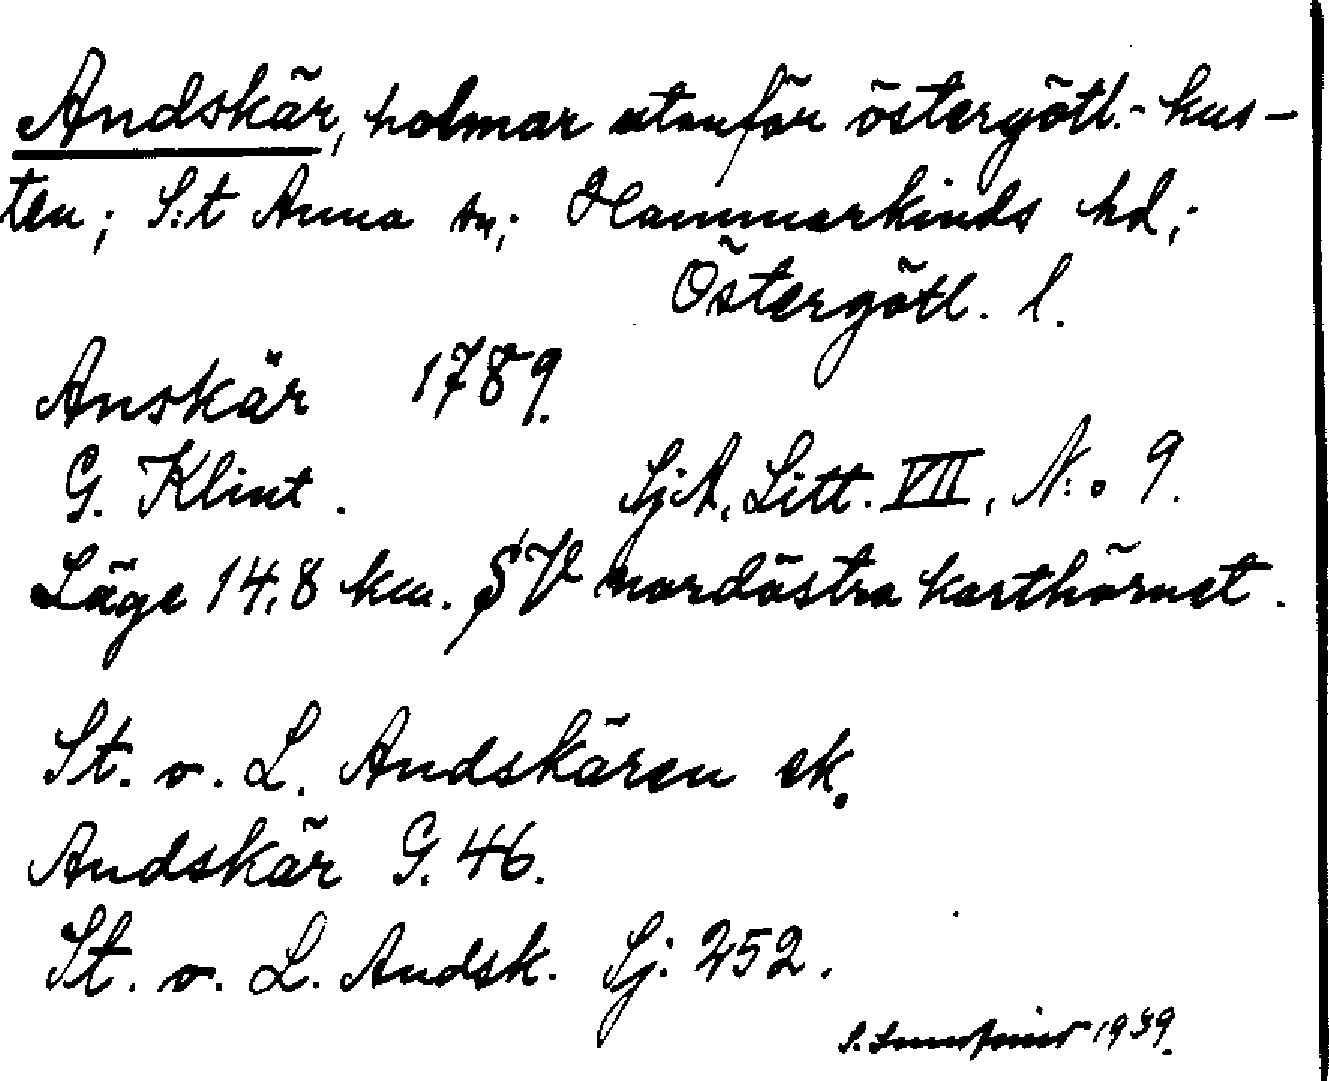 Andskär, holmar utanför östergötl.- kus-
ten; S:t Anna sn; Hammarkinds hd;
Östergötl. l.
Anskär 1789.
G. Klint. SjA, Litt. VII, N:o 9.
Läge 14,8 km. SV nordöstra karthörnet.
St. o. L. Andskären ek.
Andskär G. 46.
St. o. L. Andsk. Sj. 252.
S. 1939.